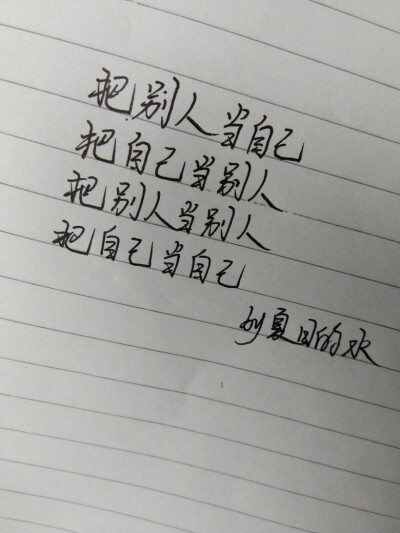 把别人当自己
把自己当别人
把别人当别人
把自己当自己
by夏日的欢